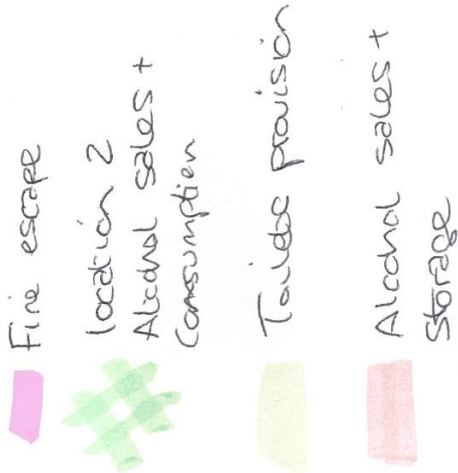 Fire escape
location 2
Alcohol sales +
Consumption
Toilet provision
Alcohol sales +
Storage